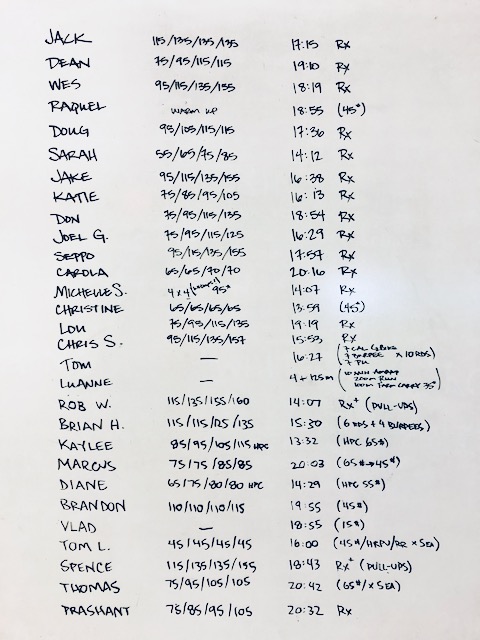 JACK 115/135/135/135 17:15 Rx
DEAN 75/95/115/115 19:10 Rx
WES 95/115/135/155 18:19 Rx
RAQUEL WARM UP 18:55 (45#)
DOUG 95/105/115/115 17:36 Rx
SARAH 55/65/75/85 14:12 Rx
JAKE 95/115/135/155 16:38 Rx
KATIE 75/85/95/105 16:13 Rx
DON 75/95/115/135 18:54 Rx
JOEL G. 75/95/115/125 16:29 Rx
SEPPO 95/115/135/155 17:57 Rx
CAROLA 65/65/70/70 20:16 Rx
MICHELLE S. 4x4 95# 14:07 Rx
CHRISTINE 65/65/65/65 13:59 (45#)
LOU 75/95/115/135 19:19 Rx
CHRIS S. 95/115/135/157 15:53 Rx
TOM — 16:27 (7 CAL 7 BURPEE x 10 RDS 7 PU)
LUANNE — 4+125m (10 MIN AMRAP 200m RUN 100m FARM CARRY 35#)
ROB W. 115/135/155/160 14:07 Rx+ (PULL-UPS)
BRIAN H. 115/115/125/135 15:30 (6 RDS + 4 BURPEES)
KAYLEE 85/95/105/115 HPC 13:32 (HPC 65#)
MARCUS 75/75/85/85 20:03 (65#→45#)
DIANE 65/75/80/80 HPC 14:29 (HPC 55#)
BRANDON 110/110/110/115 19:55 (45#)
VLAD — 18:55 (15#)
TOM L. 45/45/45/45 16:00 (45#/HRPU/RR x 5EA)
SPENCE 115/135/135/155 18:43 Rx+ (PULL-UPS)
THOMAS 75/95/105/105 20:42 (65#/x 5EA)
PRASHANT 75/85/95/105 20:32 Rx